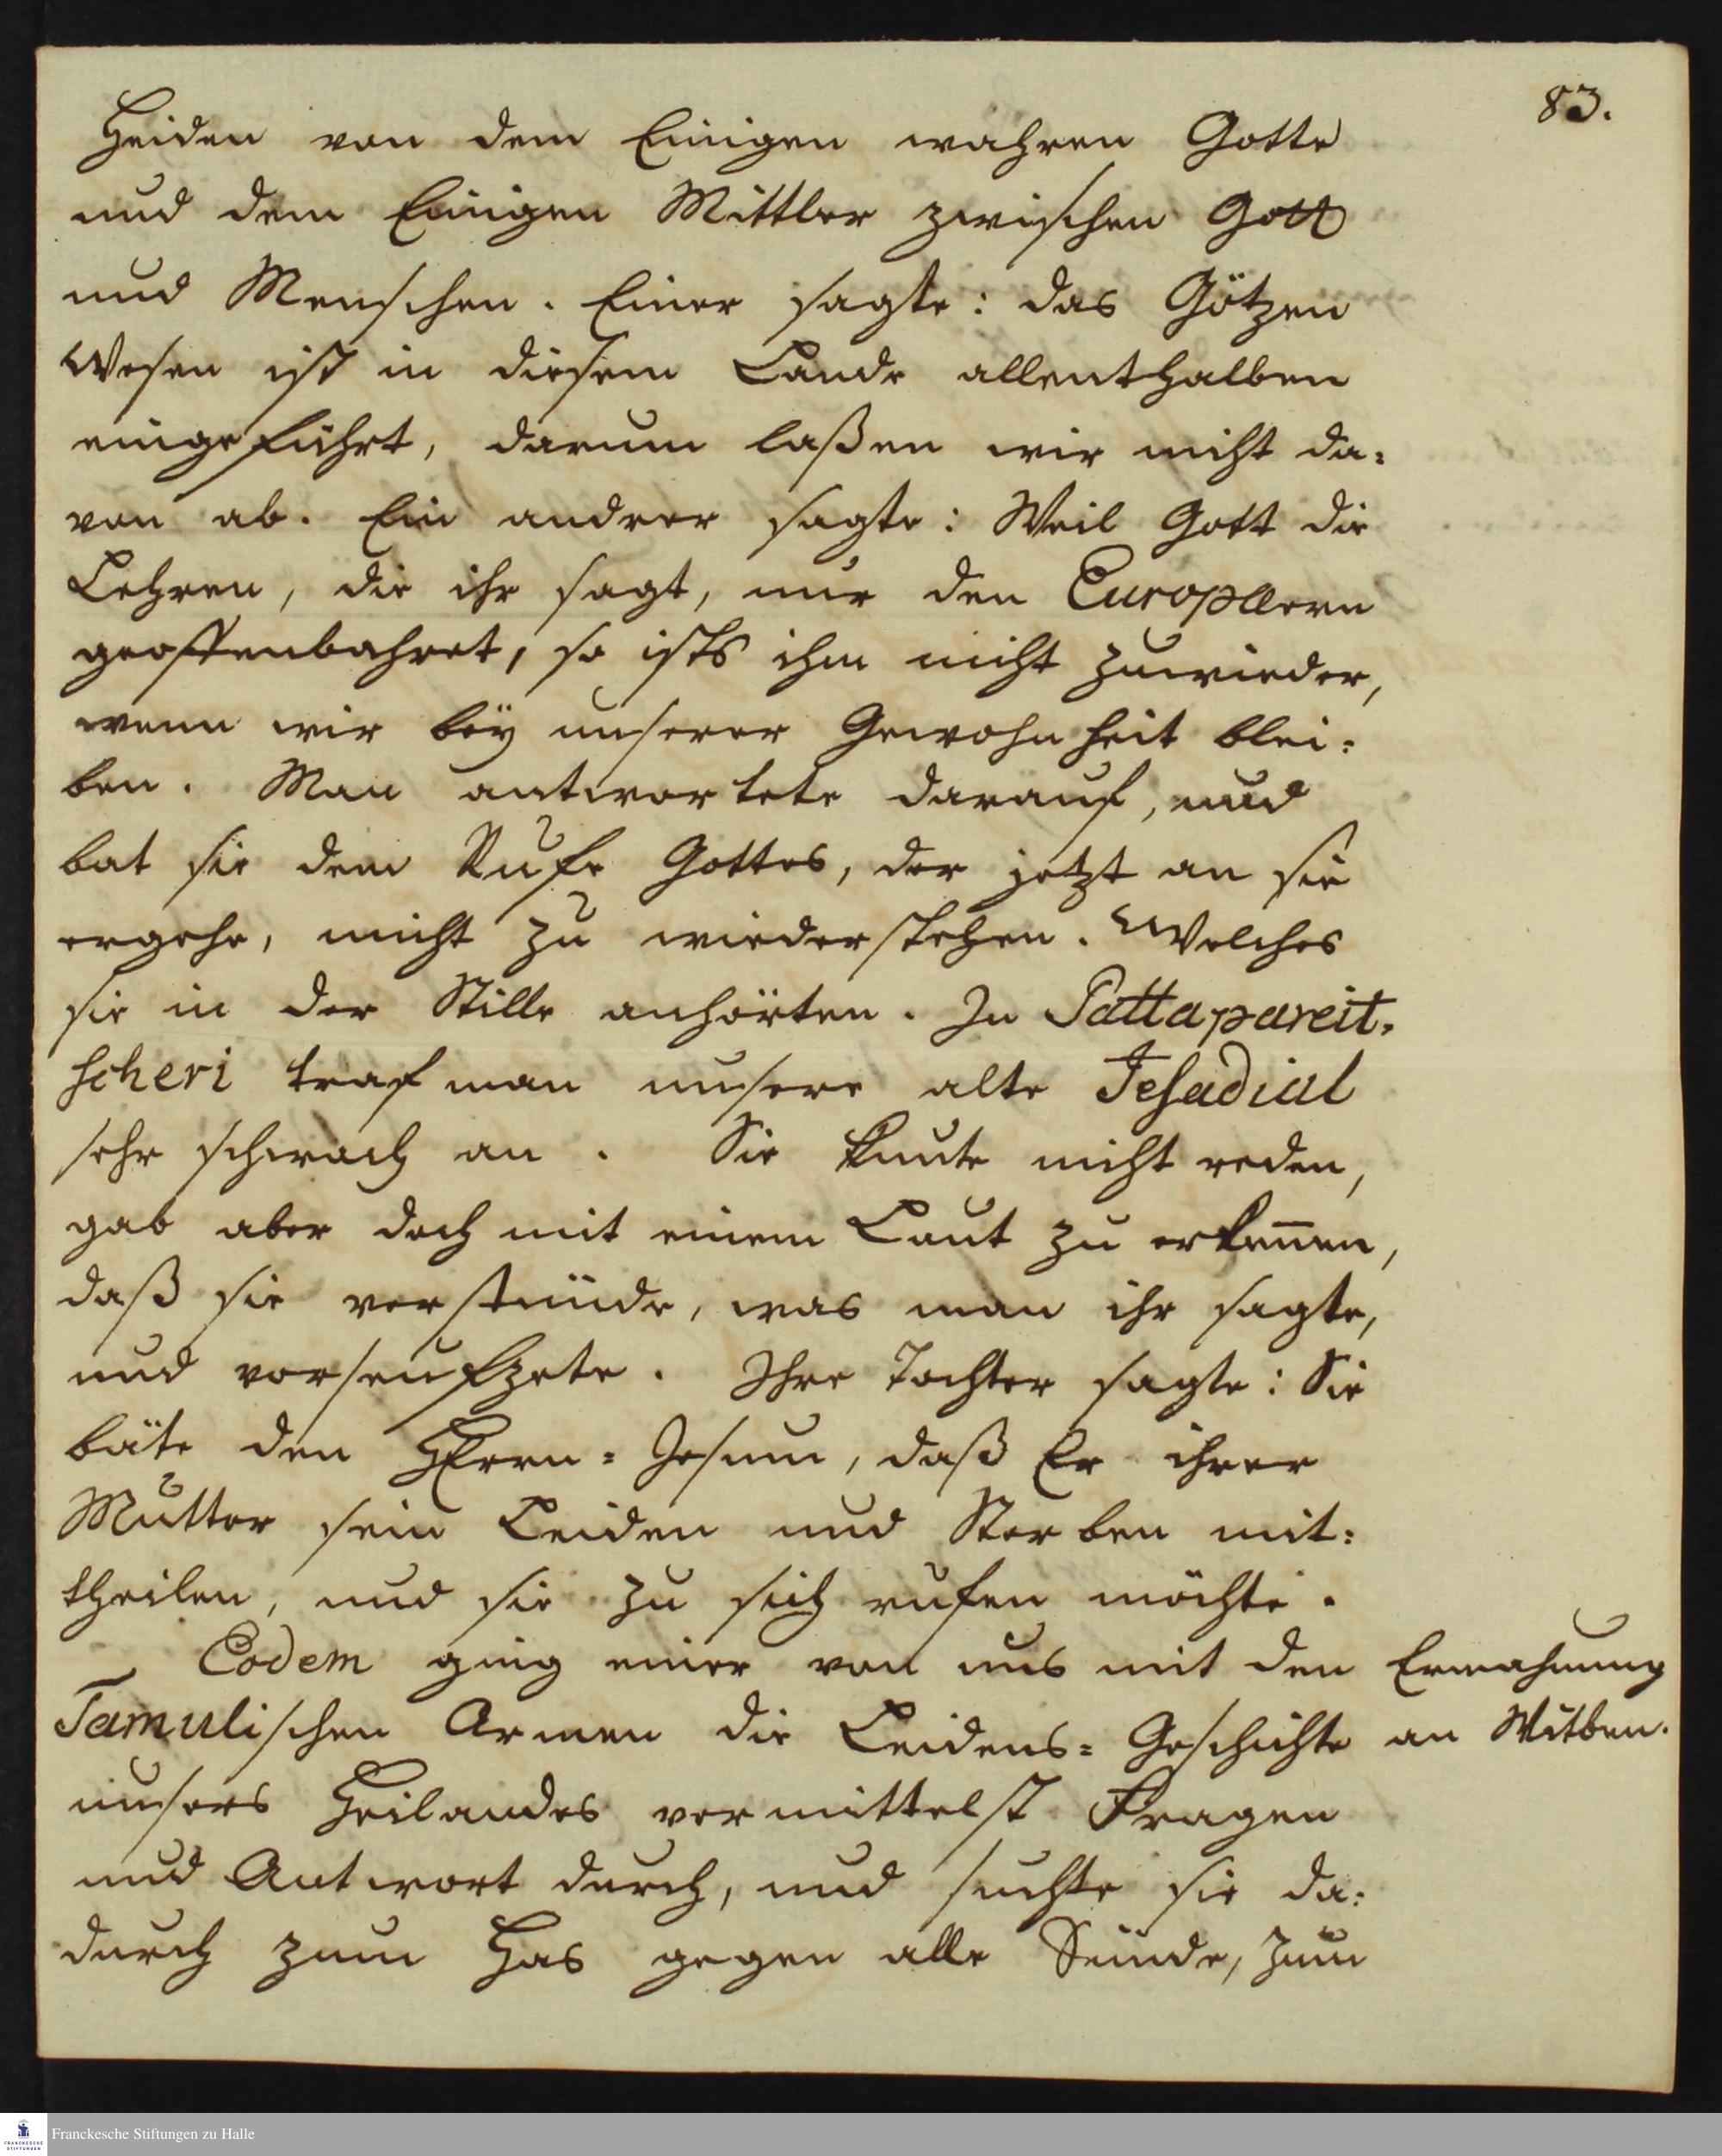 83.
Heiden von dem Einigen wahren Gotte
und dem Einigen Mittler zwischen Gott
und Menschen. Einer sagte: das Götzen
Wesen ist in diesem Lande allenthalben
eingeführt, darum laßen wir nicht da=
von ab. Ein andrer sagte: Weil Gott die
Lehren, die ihr sagt, nur den Europæern
geoffenbahret, so ists ihm nicht zuwieder,
wenn wir bey unserer Gewohnheit blei=
ben. Man antwortete darauf, und
bat sie dem Rufe Gottes, der jetzt an sie
ergehe, nicht zu wiederstehen. Welches
sie in der Stille anhörten. In Pattapareit=
scheri traf man unsere alte Jesadial
sehr schwach an. Sie kunte nicht reden,
gab aber doch mit einem Laut zu erkennen,
daß sie verstünde, was man ihr sagte,
und vorseufzete. Ihre Tochter sagte: Sie
bäte den HErrn=Jesum, daß Er ihrer
Mutter sein Leiden und Sterben mit=
theilen, und sie zu sich rufen möchte.
Eodem ging einer von uns mit den
Tamulischen Armen die Leidens=Geschichte
unsers Heilandes vermittelst Fragen
und Antwort durch, und suchte sie da=
durch zum Has gegen alle Sünde, zum
Ermahnung
an Witben.
Franckesche Stiftungen zu Halle